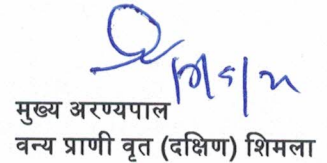 मुख्य अरण्यपाल
वन्य प्राणी वृत (दक्षिण) शिमला